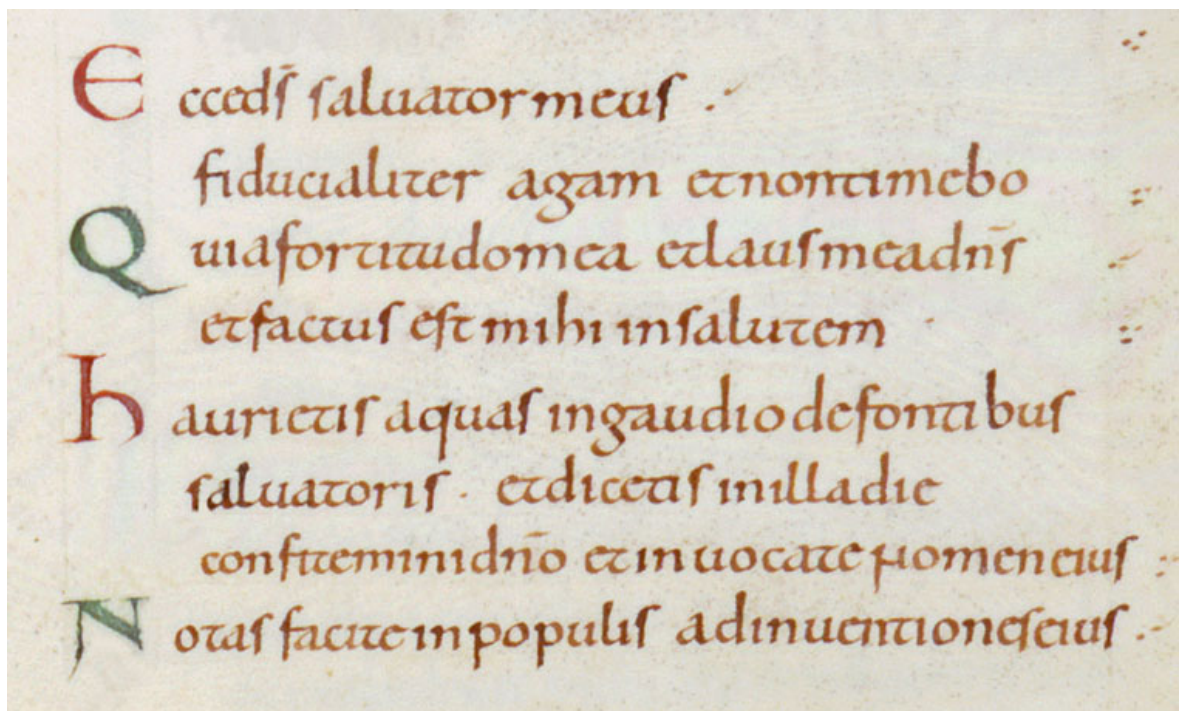 Ecceds̄ saluator meus
fiducialiter agam et non timebo
Quia fortitudo mea et laus mea dn̄s
et factus est mihi in salutem
haurietis aquas in gaudio de fontibus
saluatoris · et dicetis in illa die
confitemini dn̄o et inuocate nomen eius
Notas facite in populis adinuentiones eius ·